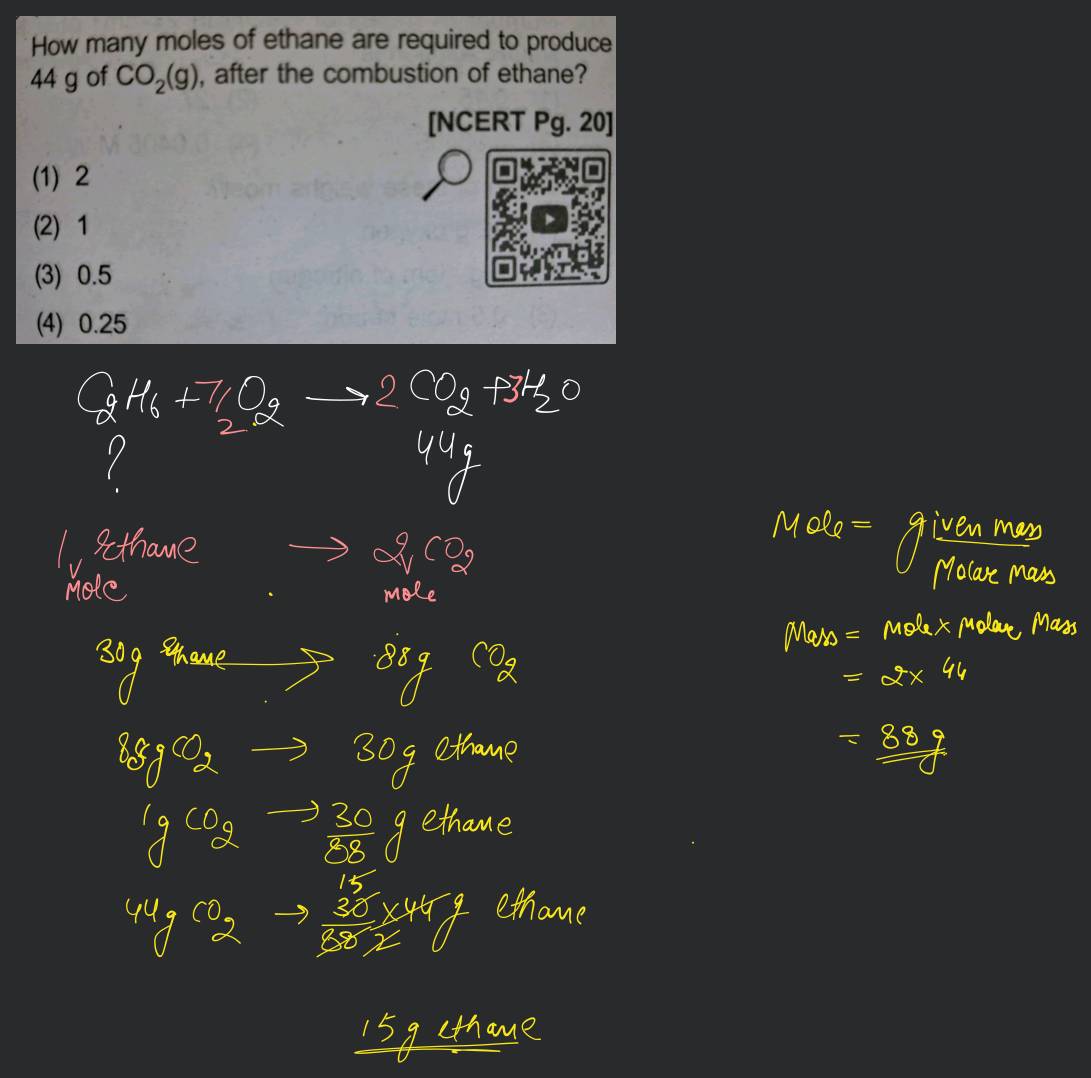 How many moles of ethane are required to produce
44 g of CO₂(g), after the combustion of ethane?
[NCERT Pg. 20]
(1) 2
(2) 1
(3) 0.5
(4) 0.25
C₂H₆ + 7/2 O₂ → 2 CO₂ + 3H₂O
? 44g
1 mole Ethane → 2 mole CO₂
30g Ethane → 88g CO₂
88g CO₂ → 30g ethane
1g CO₂ → 30/88 g ethane
44g CO₂ → 15 30/88 2 x 44 g ethane
15g ethane
Mole = given mass / Molar mass
Mass = mole x Molar Mass
= 2 x 44
= 88 g